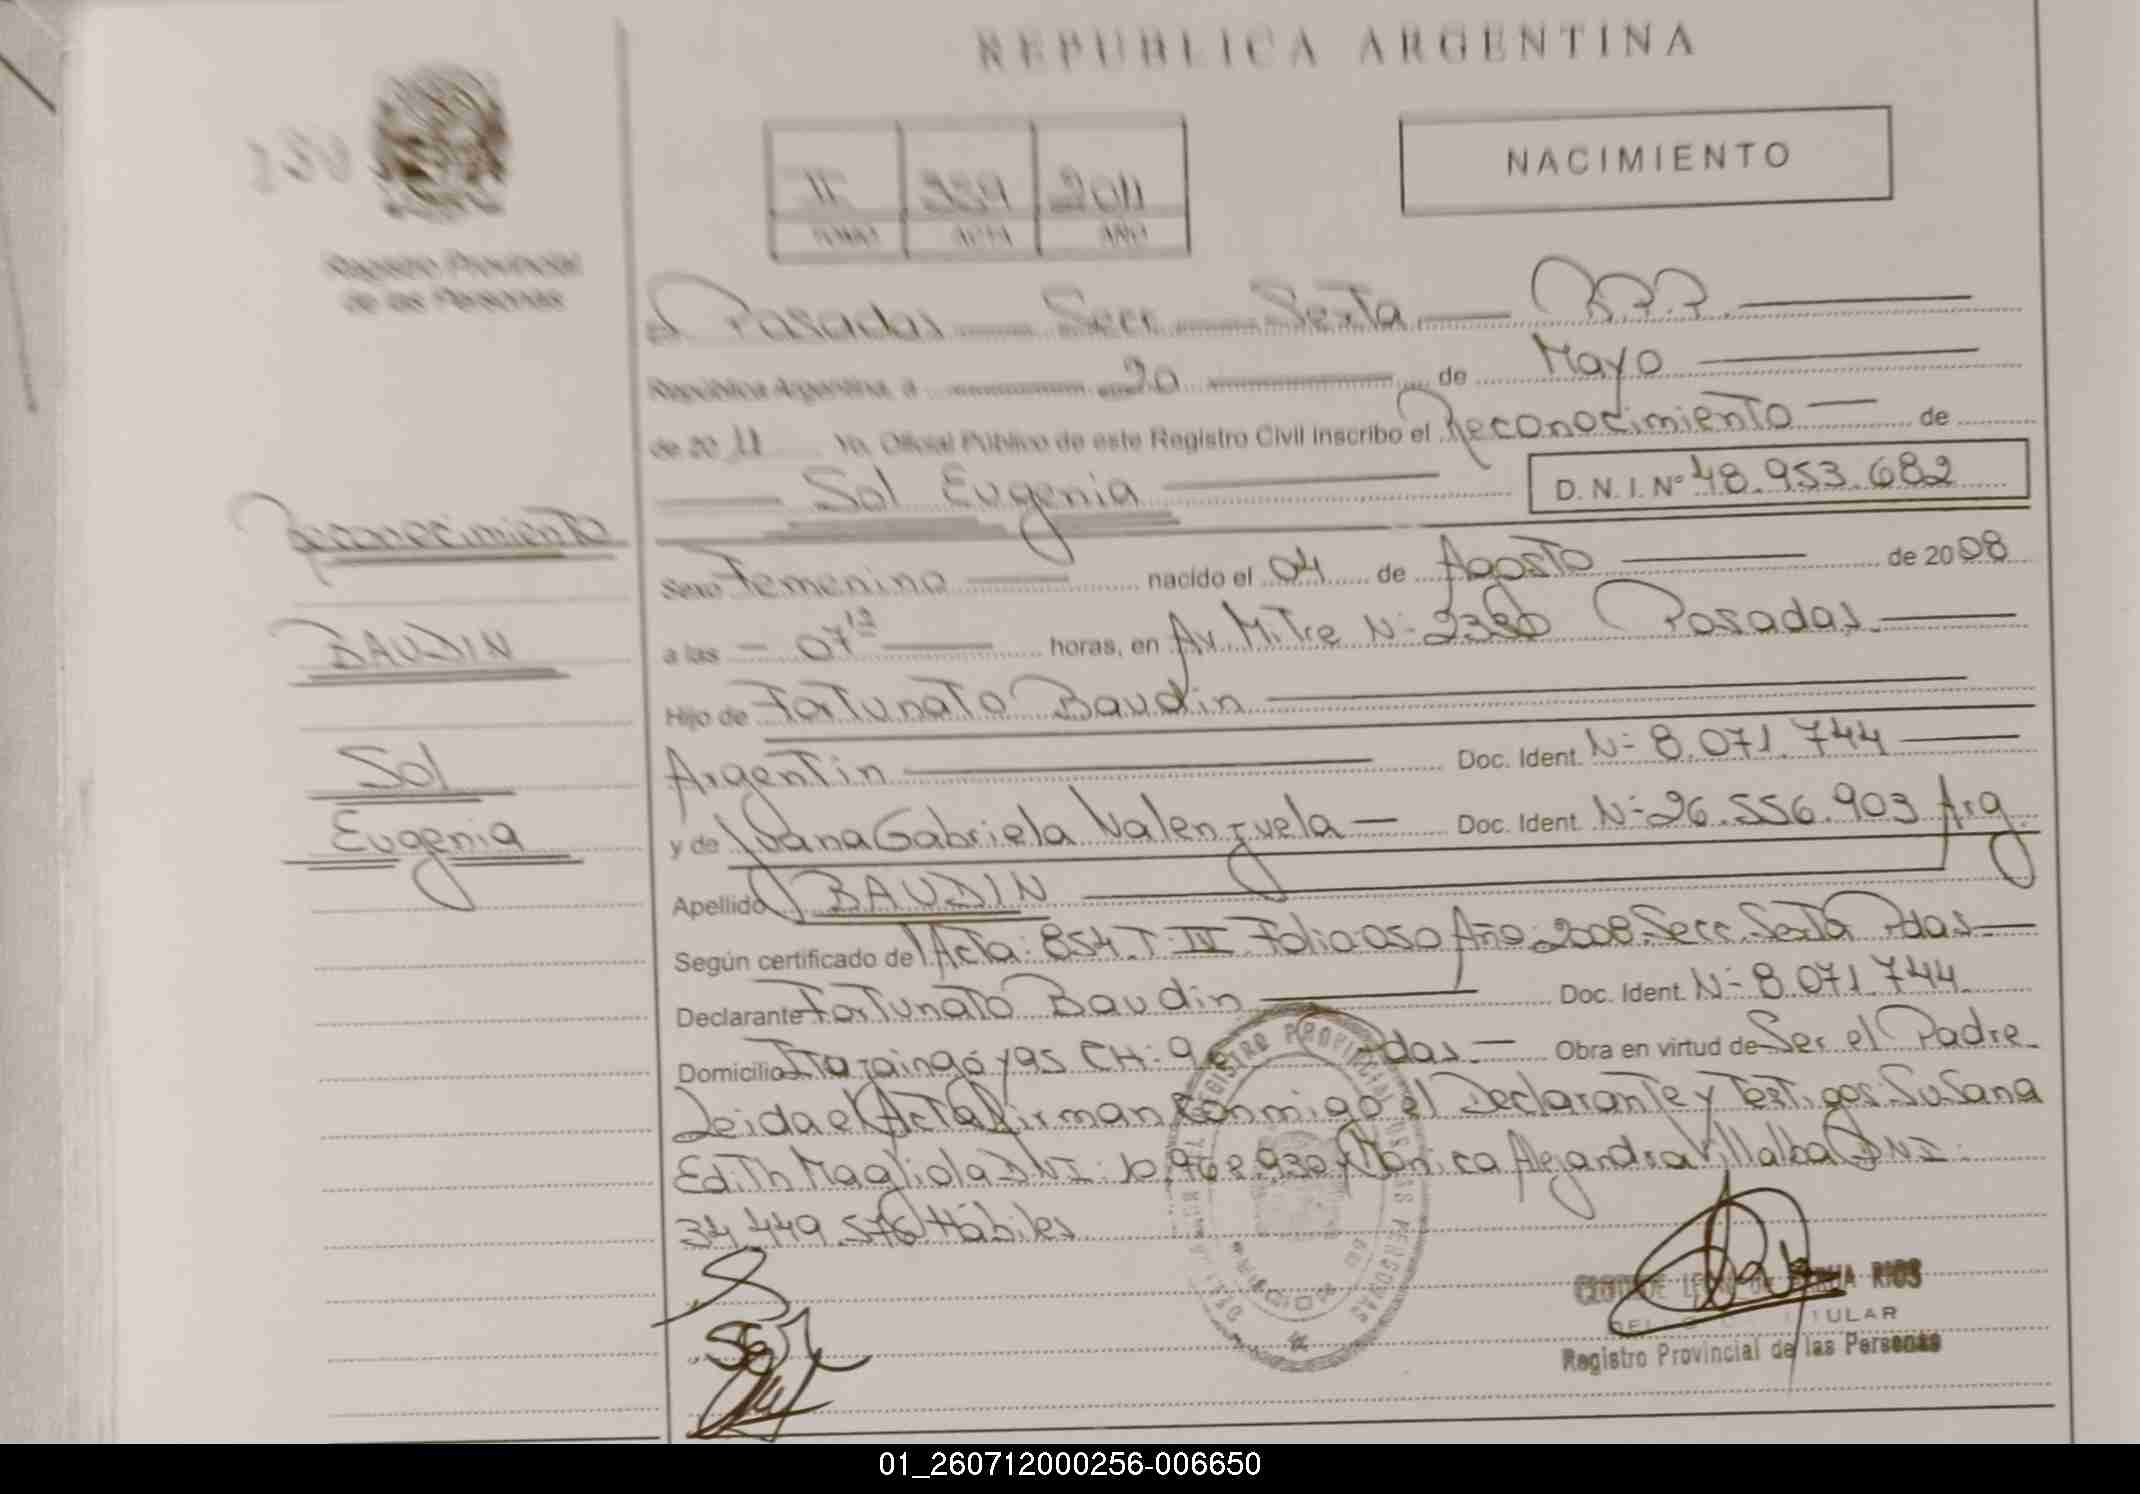 REPUBLICA ARGENTINA
NACIMIENTO
II 2011
TOMO ACTA AÑO
Registro Provincial
de las Personas
Posadas Secc Sexta R.P.P.
República Argentina a 20 de Mayo
de 2011 Yo, Oficial Público de este Registro Civil inscribo el Reconocimiento de
Sol Eugenia D.N.I. Nº 48.953.682
Reconocimiento
BAUDIN
Sol
Eugenia
Sexo Femenino nacido el 04 de Agosto de 2008
a las 07 12 horas, en Av. Mitre Nº Posadas
Hijo de Fortunato Baudin
Argentin Doc. Ident. Nº 8.071.744
y de Gabriela Valenzuela Doc. Ident. Nº 26.556.903 Arg.
Apellido BAUDIN
Según certificado de Acta: 854. T: IV Folio 050 Año: 2008. Secc. Sexta Pdas
Declarante Fortunato Baudin Doc. Ident. Nº 8.071.744
Domicilio CH: Pdas. Obra en virtud de Ser el Padre
Leida el Acta firman Conmigo el Declarante y Testigos: Susana
Edith Magliola DNI: 10.968.930 y Mónica Alejandra Villalba DNI:
34.449.576 Hábiles
REGISTRO PROVINCIAL DE LAS PERSONAS
RIOS
TITULAR
Registro Provincial de las Personas
01_260712000256-006650